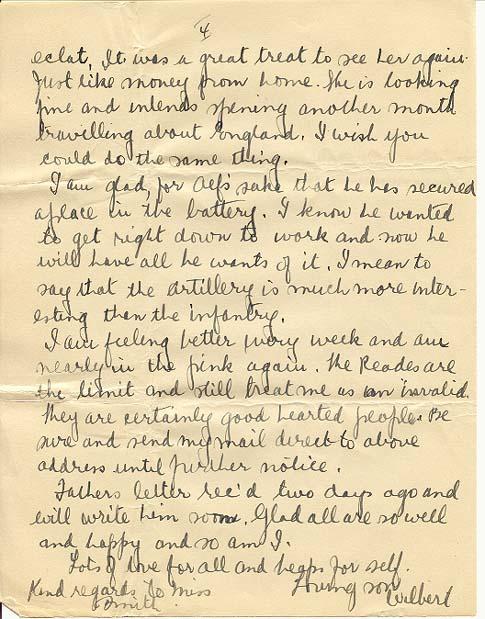 4
eclat. It was a great treat to see her again.
Just like money from home. She is looking
fine and intends spening another month
travelling about England. I wish you
could do the same thing.
I am glad, for Alf's sake that he has secured
a place in the battery. I know he wanted
to get right down to work and now he
will have all he wants of it. I mean to
say that the artillery is much more inter-
esting than the infantry.
I am feeling better every week and am
nearly in the pink again. The Reades are
the limit and still treat me as an invalid.
They are certainly good hearted people. Be
sure and send my mail direct to above
address until further notice.
Fathers letter rec'd two days ago and
will write him soon. Glad all are so well
and happy and so am I.
Lots of love for all and heaps for self.
Loving son
Wilbert
Kind regards to Miss
Smith.